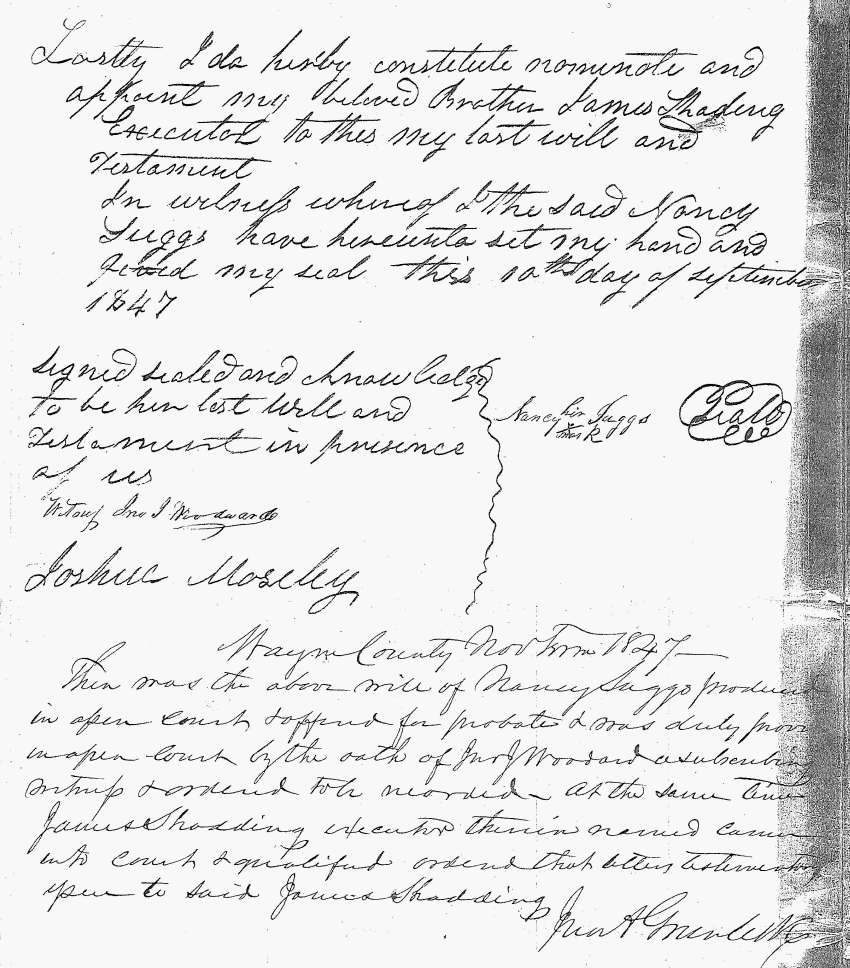 Lastly I do herby constitute nominate and
appoint my beloved Brother James Shadeng
Executor to this my last will and
Testament
In witness whereof I the said Nancy
Suggs have hereunto set my hand and
my seal this 10th day of september
1847
signed sealed and acknowledge
to be her last will and
Testament in presence
of us
Nancy her Suggs
x mark
Seal
Witness Jno J Woodward
Joshua Moseley
Wayne County Nov Term 1847
Then was the above will of Nancy Suggs produced
in open court & offered for probate & was duly prov
in open court by the oath of Jno J Woodard a subscribing
witness & ordered to be recorded At the same time
James Shadding executor therein named came
into court & qualified ordered that letters testamentary
to said James Shadding
Jno A Green